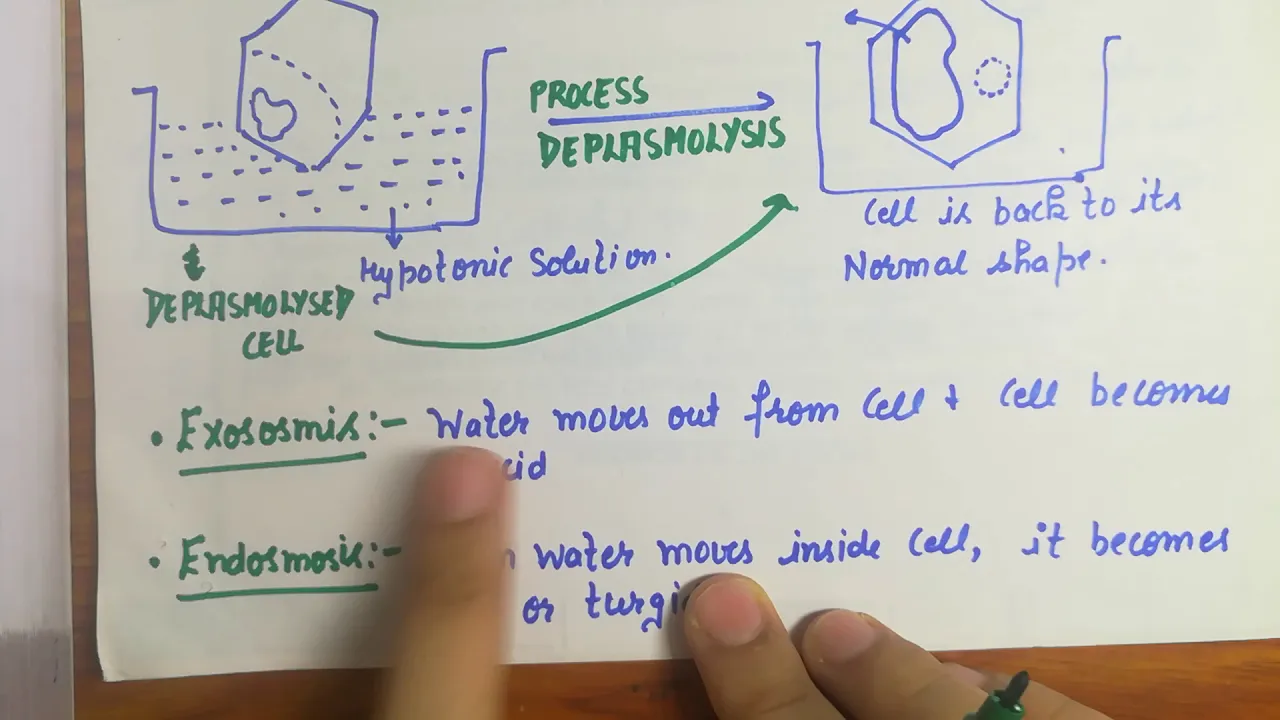 PROCESS
DEPLASMOLYSIS
Hypotonic Solution.
DEPLASMOLYSED
CELL
Cell is back to its
Normal shape.
• Exososmis:- Water moves out from Cell + Cell becomes
• Endosmosis:- water moves inside Cell, it becomes
or